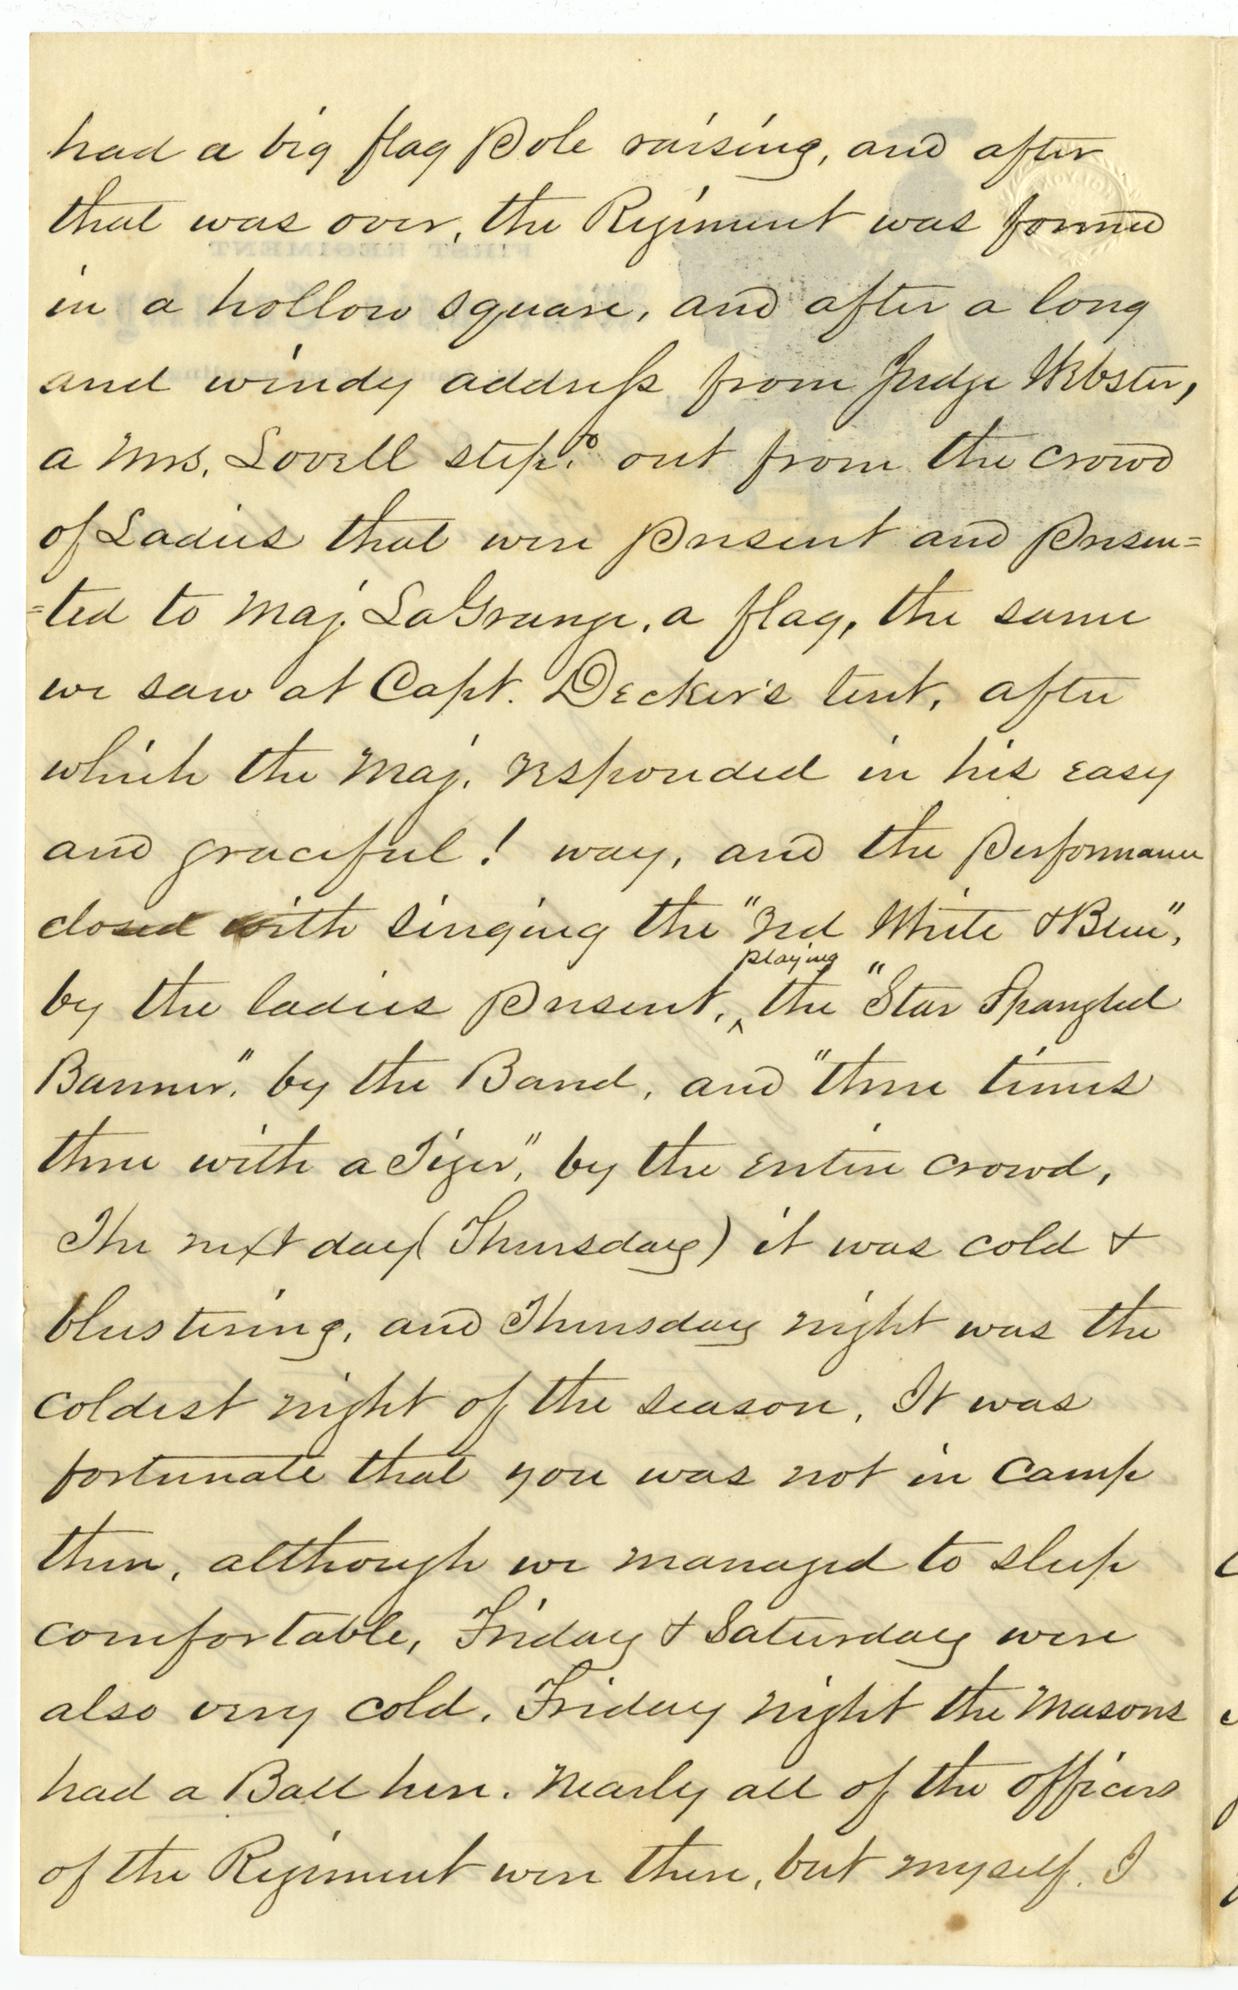 had a big flag Pole raising, and after
that was over, the Regiment was formed
in a hollow square, and after a long
and windy address from Judge Webster,
a Mrs. Lovell step.d out from the crowd
of Ladies that were present and presen=
=ted to Maj. LaGrange, a flag, the same
we saw at Capt. Decker's tent, after
which the Maj. responded in his easy
and graceful! way, and the performance
closed with singing the "Red White & Blue",
playing
by the ladies present, ^ the "Star Spangled
Banner", by the Band, and "three times
three with a Tiger", by the entire crowd,
The next day (Thursday) it was cold &
blustering, and Thursday night was the
coldest night of the season. It was
fortunate that you was not in camp
then, although we managed to sleep
comfortable, Friday & Saturday were
also very cold. Friday night the Masons
had a Ball here. Nearly all of the officers
of the Regiment were there, but myself. I
FIRST REGIMENT